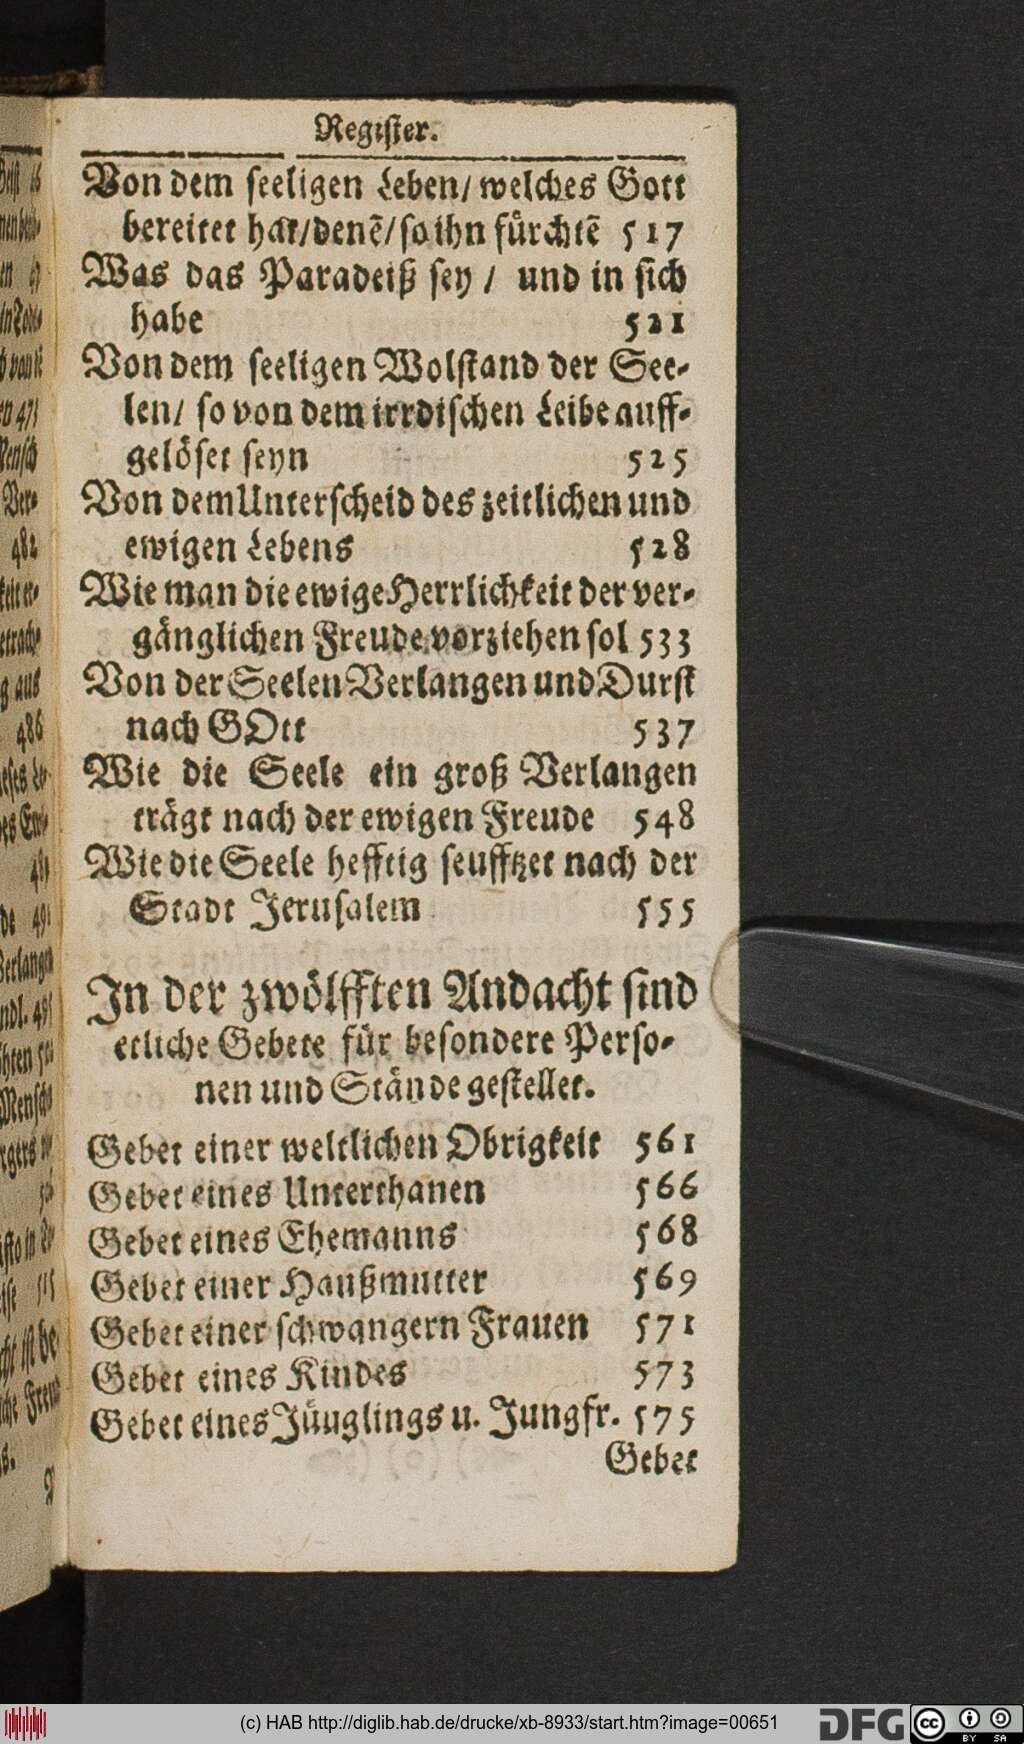 Register.
Von dem seeligen Leben/ welches Gott
bereitet hat/denē/so ihn fürchtē 517
Was das Paradeiß sey / und in sich
habe 521
Von dem seeligen Wolstand der See-
len/ so von dem irrdischen Leibe auff-
gelöset seyn 525
Von dem Unterscheid des zeitlichen und
ewigen Lebens 528
Wie man die ewige Herrlichkeit der ver-
gänglichen Freude vorziehen sol 533
Von der Seelen Verlangen und Durst
nach GOtt 537
Wie die Seele ein groß Verlangen
trägt nach der ewigen Freude 548
Wie die Seele hefftig seufftzet nach der
Stadt Jerusalem 555
In der zwölfften Andacht sind
etliche Gebete für besondere Perso-
nen und Stände gestellet.
Gebet einer weltlichen Obrigkeit 561
Gebet eines Unterthanen 566
Gebet eines Ehemanns 568
Gebet einer Haußmutter 569
Gebet einer schwangern Frauen 571
Gebet eines Kindes 573
Gebet eines Jüuglings u. Jungfr. 575
Gebet
(c) HAB http://diglib.hab.de/drucke/xb-8933/start.htm?image=00651
DFG
cc BY SA